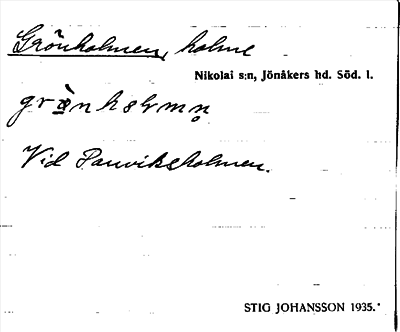 Grönholmen, holme
Nikolai s:n, Jönåkers hd. Söd. l.
Vid Panviksholmen.
STIG JOHANSSON 1935.